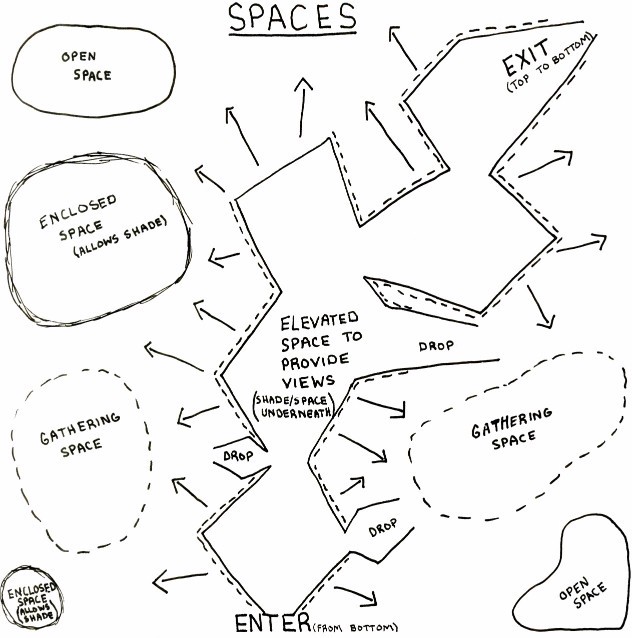 SPACES
OPEN
SPACE
EXIT
(TOP TO BOTTOM)
ENCLOSED
SPACE
(ALLOWS SHADE)
ELEVATED
SPACE TO
PROVIDE
VIEWS
(SHADE/SPACE
UNDERNEATH)
DROP
GATHERING
SPACE
GATHERING
SPACE
DROP
DROP
ENCLOSED
SPACE
(ALLOWS
SHADE)
OPEN
SPACE
ENTER (FROM BOTTOM)